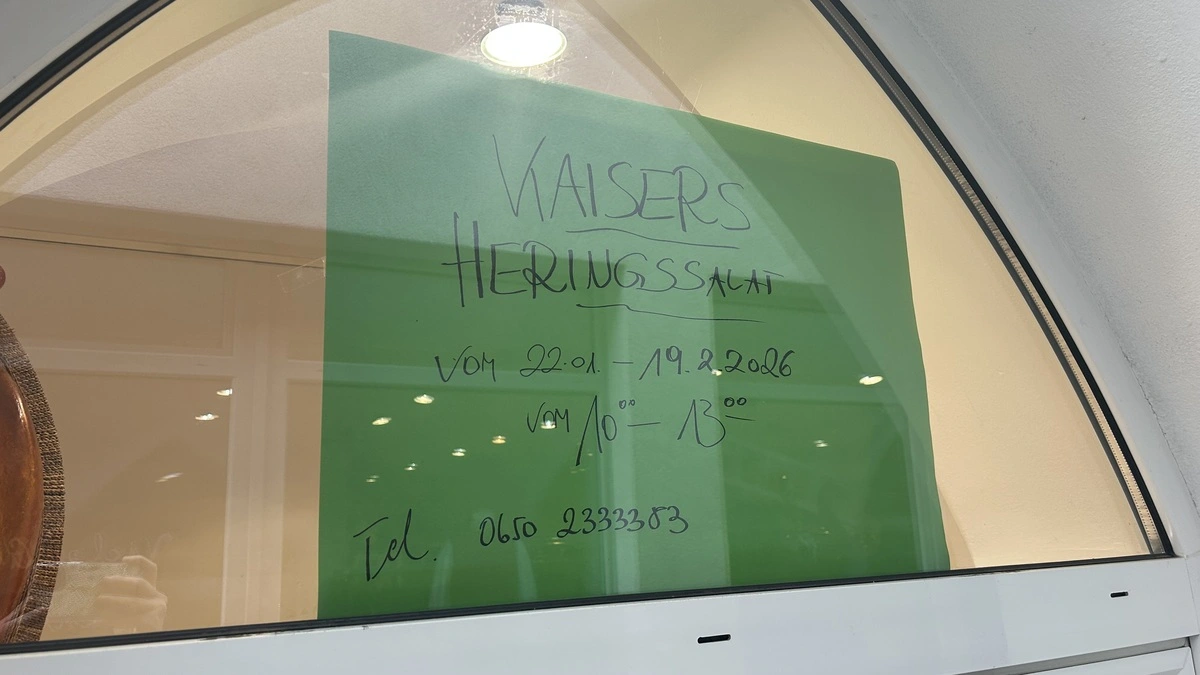 KAISERS
HERINGSSALAT
VOM 22.01. – 19.2.2026
VOM 10⁰⁰ – 13⁰⁰
Tel. 0650 2333383